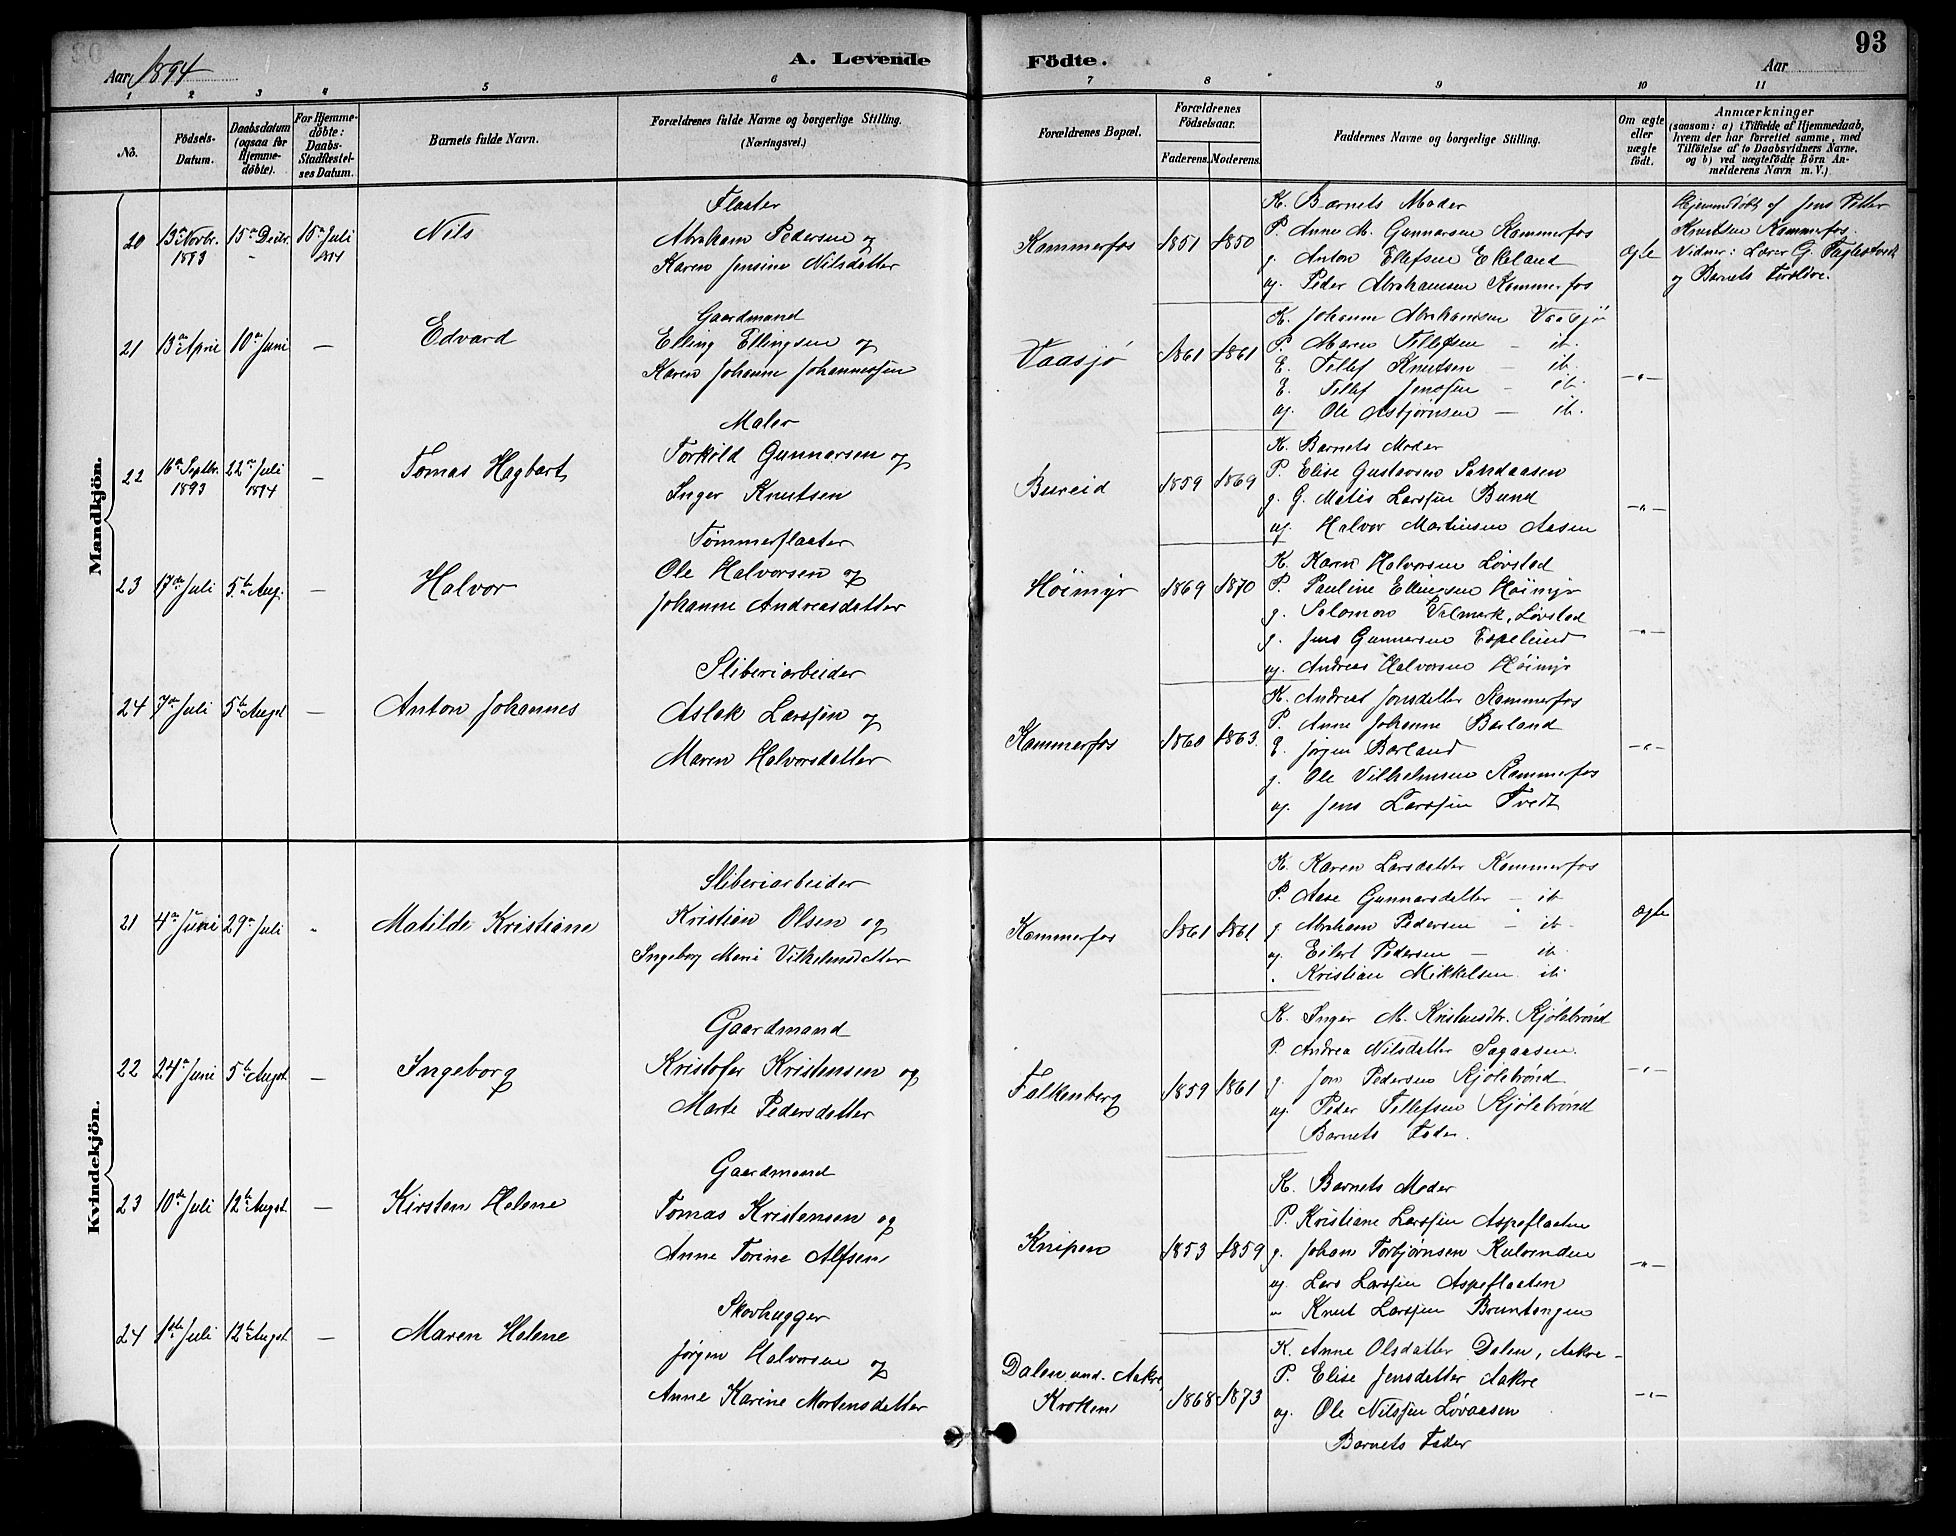 Aar 1894
A. Levende Födte.
Aar
93
1 2 3 4 5 6 7 8 9 10 11
Nô.
Födsels-Datum.
Daabsdatum (ogsaa for Hjemme-döbte).
For Hjemme-döbte: Daabs-Stadfæstel-ses Datum.
Barnets fulde Navn.
Forældrenes fulde Navne og borgerlige Stilling. (Næringsvei.)
Forældrenes Bopæl.
Forældrenes Födselsaar.
Faderens. Moderens.
Faddernes Navne og borgerlige Stilling.
Om ægte eller uægte födt.
Anmærkninger
(saasom: a) i Tilfælde af Hjemmedaab, hvem der har forrettet samme, med Tilföielse af to Daabsvidners Navne, og b) ved uægtefödte Börn An-melderens Navn m. V.)
Mandkjön.
20 13de Novbr. 1893 15de Decbr. 15de Juli 1894 Nils
Flaater
Abraham Pedersen og
Karen Jensine Nilsdatter
Kammerfos 1851 1850
K. Barnets Moder
P. Anne M. Gunnarsen Kammerfos
g. Anton Ellefsen Ekeland
og. Peder Abrahamsen Kammerfos
ægte
Hjemmedöbt af Jens Petter
Knutsen Kammerfos.
Vidner: Lærer G.
og Barnets Forældre.
21 13de April 10de Juni — Edvard
Gaardmand
Elling Ellingsen og
Karen Johanne Johannessen
Vaasjø 1861 1861
K. Johanne Abrahamsen Vaasjø
P. Maren Tellefsen — ib.
E. Tellef Knutsen — ib.
E. Tellef Jenssen — ib.
og. Ole Asbjørnsen — ib.
—"—
22 16de Septbr. 1893 22de Juli 1894 — Tomas Hagbart
Maler
Torkild Gunnarsen og
Inger Knutsen
Bureid 1859 1869
K. Barnets Moder
P. Elise Gustavsen Sandaasen
g. G. Matis Larssen Bund
og Halvor Martinsen Aasen
—"—
23 17de Juli 5te Aug. — Halvor
Tømmerflaater
Ole Halvorsen og
Johanne Andreasdatter
Höimyr 1869 1870
K. Karen Halvorsen Løvstad
P. Pauline Ellingsen Höimyr
g. Salomon Valmark, Løvstad
g. Jens Gunnarsen Espelund
og Andreas Halvorsen Höimyr
—"—
24 7de Juli 5te Augst — Anton Johannes
Sliberiarbeider
Aslak Larssen og
Maren Halvorsdatter
Kammerfos 1860 1863.
K. Andrea Jonsdatter Kammerfos
P. Anne Johanne Barland
E. Jørgen Barland
g. Ole Vilhelmsen Kammerfos
og Jens Larssen Tvedt
—"—
Kvindekjön.
21 4de Juni 29de Juli " Matilde Kristiane
Sliberiarbeider
Kristian Olsen og
Ingeborg Marie Vilhelmsdatter
Kammerfos 1861 1861
K. Karen Larsdatter Kammerfos
P. Aase Gunnarsdatter — ib
g. Abraham Pedersen — ib.
og Eilert Pedersen — ib.
" Kristian Mikkelsen ib.
ægte
22 24de Juni 5te Augst. — Ingeborg
Gaardmand
Kristofer Kristensen og
Marte Pedersdatter
Falkenberg 1859 1861
K. Inger M. Kristensdtr. Kjølebrönd
P. Andrea Nilsdatter Sagaasen.
g. Jon Pedersen Kjølebrönd
og Peder Tellefsen Kjølebrönd
Barnets Fader.
—"—
23 10de Juli 12te Augst. — Kirsten Helene
Gaardmand
Tomas Kristensen og
Anne Torine Alfsen
Knipen 1853 1859
K. Barnets Moder
P. Kristiane Larssen Aspeflaaten
g. Johan Torbjørnsen
og Lars Larssen Aspeflaaten
" Knut Larssen Bruntangen
—"—
24 1ste Juli 12te Augst. — Maren Helene
Skovhugger
Jørgen Halvorsen og
Anne Karine Mortensdatter
Dalen und. Aakre,
Kroken
1868 1873
K. Anne Olsdatter Dalen, Aakre
P. Elise Jensdatter Aakre
og. Ole Nilssen Løvaasen
Barnets Fader
—"—